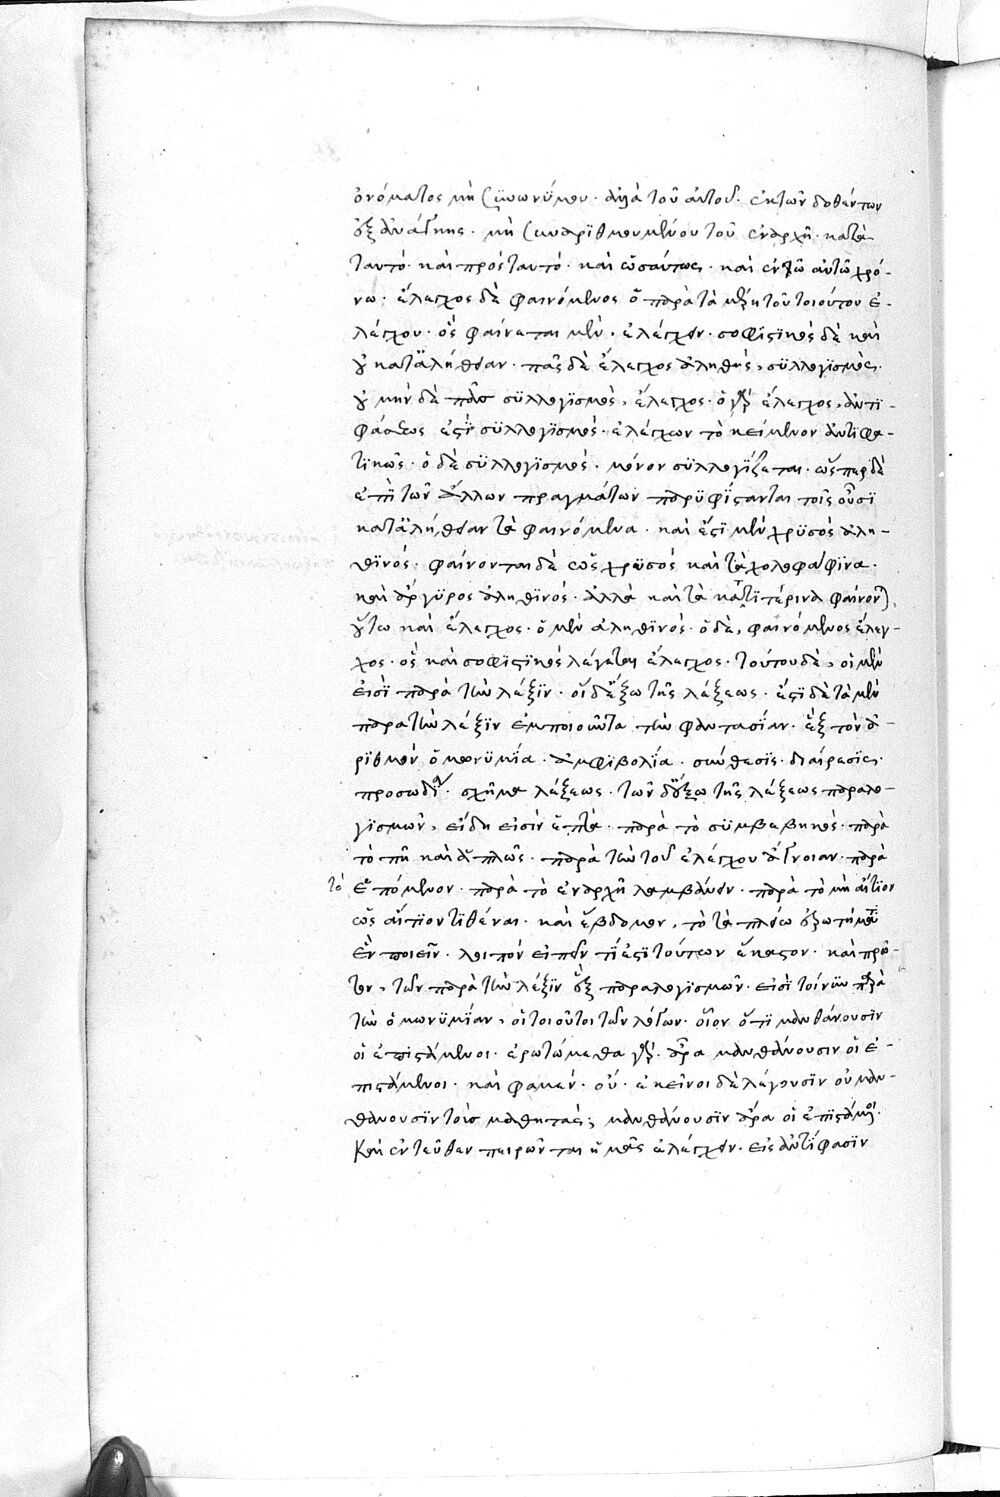 ὀνόματος μὴ συνωνύμου· ἀλλὰ τοῦ αὐτοῦ· ἐκ τῶν δοθέντων
ἐξ ἀνάγκης· μὴ συναριθμουμένου τοῦ ἐν ἀρχῇ· κατὰ
ταυτό· καὶ πρὸς ταυτό· καὶ ὡσαύτως· καὶ ἐν τῷ αὐτῷ χρό-
νω· ἔλεγχος δὲ φαινόμενος ὁ παρὰ τὰ μέρη τοῦ τοιούτου ἐ-
λέγχου· ὃς φαίνεται μὲν, ἐλέγχειν· σοφιστικὸς δὲ καὶ
οὐ κατ' ἀλήθειαν· πᾶς δὲ ἔλεγχος ἀληθὴς, συλλογισμὸς·
οὐ μὴν δὲ πᾶς συλλογισμὸς, ἔλεγχος· ὁ γὰρ ἔλεγχος, ἀντι-
φάσεως ἐστὶ συλλογισμὸς· ἐλέγχων τὸ κείμενον ἀντιφα-
τικῶς· ὁ δὲ συλλογισμὸς· μόνον συλλογίζεται· ὥσπερ δὲ
ἐπὶ τῶν ἄλλων πραγμάτων παρυφίσανται τοῖς οὖσι
κατ' ἀλήθειαν τὰ φαινόμενα· καὶ ἔστι μὲν χρυσὸς ἀλη-
θινός· φαίνονται δὲ ὡς χρυσὸς καὶ τὰ χολοβάφινα·
καὶ ἄργυρος ἀληθινός· ἀλλὰ καὶ τὰ κασσιτέρινα φαίνονται
οὕτω καὶ ἔλεγχος· ὁ μὲν ἀληθινός· ὁ δὲ, φαινόμενος ἔλεγ-
χος· ὃς καὶ σοφιστικὸς λέγεται ἔλεγχος· τούτου δὲ, οἱ μὲν
εἰσὶ παρὰ τὴν λέξιν· οἱ δ' ἔξω τῆς λέξεως· ἔστι δὲ τὰ μὲν
παρὰ τὴν λέξιν ἐμποιοῦντα τὴν φαντασίαν· ἓξ τὸν ἀ-
ριθμὸν ὁμωνυμία· ἀμφιβολία· σύνθεσις· διαίρεσις·
προσωδία· σχῆμα λέξεως· τῶν δ' ἔξω τῆς λέξεως παραλο-
γισμῶν, εἴδη εἰσὶν ἑπτὰ· παρὰ τὸ συμβεβηκὸς· παρὰ
τὸ πῆ καὶ ἁπλῶς· παρὰ τὴν τοῦ ἐλέγχου ἄγνοιαν· παρὰ
τὸ ἑπόμενον· παρὰ τὸ ἐν ἀρχῇ λαμβάνειν· παρὰ τὸ μὴ αἴτιον
ὡς αἴτιον τιθέναι· καὶ ἕβδομον, τὸ τὰ πλείω ἐρωτήματα
ἓν ποιεῖν· λοιπὸν εἰπεῖν τί ἐστι τούτων ἕκαστον· καὶ πρό-
τερον, τῶν παρὰ τὴν λέξιν ἓξ παραλογισμῶν· εἰσὶ τοίνυν παρὰ
τὴν ὁμωνυμίαν, οἱ τοιοῦτοι τῶν λόγων· οἷον ὅτι μανθάνουσιν
οἱ ἐπιστάμενοι· ἐρωτώμεθα γὰρ· ἆρα μανθάνουσιν οἱ ἐ-
πιστάμενοι· καὶ φαμέν· οὔ· ἐκεῖνοι δὲ λέγουσιν οὐ μαν-
θάνουσιν τοὺς μαθητάς; μανθάνουσιν ἄρα οἱ ἐπιστάμενοι·
Καὶ ἐντεῦθεν πειρῶνται ἡμᾶς ἐλέγχειν· εἰς ἀντίφασιν